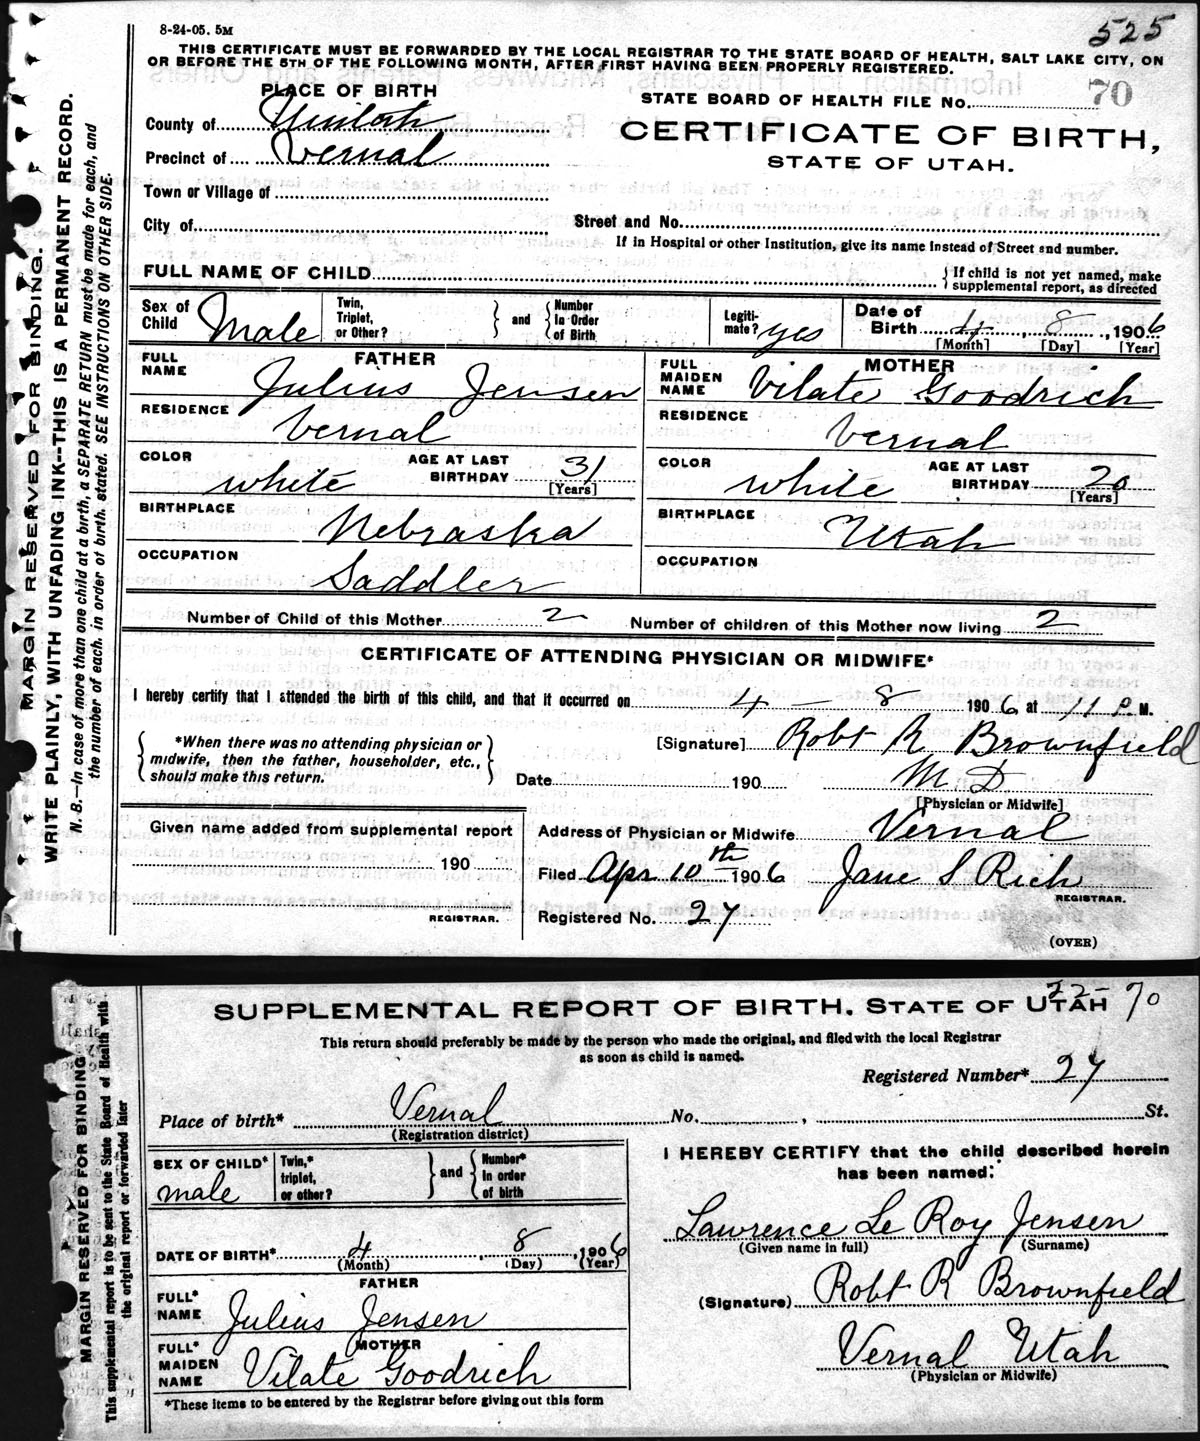 8-24-05. 5M
525
THIS CERTIFICATE MUST BE FORWARDED BY THE LOCAL REGISTRAR TO THE STATE BOARD OF HEALTH, SALT LAKE CITY, ON
OR BEFORE THE 5TH OF THE FOLLOWING MONTH, AFTER FIRST HAVING BEEN PROPERLY REGISTERED.
PLACE OF BIRTH
STATE BOARD OF HEALTH FILE No. 70
County of Uintah
CERTIFICATE OF BIRTH,
Precinct of Vernal
STATE OF UTAH.
Town or Village of
City of
Street and No.
If in Hospital or other Institution, give its name instead of Street and number.
FULL NAME OF CHILD
{If child is not yet named, make
supplemental report, as directed
Sex of Child Male
Twin, Triplet, or Other?
} and {
Number In Order of Birth
Legiti-mate? yes
Date of Birth 4, 8, 1906
[Month] [Day] [Year]
FATHER
FULL NAME Julius Jensen
MOTHER
FULL MAIDEN NAME Vilate Goodrich
RESIDENCE Vernal
RESIDENCE Vernal
COLOR white
AGE AT LAST BIRTHDAY 31
[Years]
COLOR white
AGE AT LAST BIRTHDAY 20
[Years]
BIRTHPLACE Nebraska
BIRTHPLACE Utah
OCCUPATION Saddler
OCCUPATION
Number of Child of this Mother 2
Number of children of this Mother now living 2
CERTIFICATE OF ATTENDING PHYSICIAN OR MIDWIFE*
I hereby certify that I attended the birth of this child, and that it occurred on 4 — 8 1906 at 11 P. M.
{*When there was no attending physician or
midwife, then the father, householder, etc.,
should make this return.}
[Signature] Robt R Brownfield
Date 190 M.D
[Physician or Midwife]
Given name added from supplemental report
190
REGISTRAR.
Address of Physician or Midwife Vernal
Filed Apr 10th 1906 Jane S Rich
REGISTRAR.
Registered No. 27
(OVER)
MARGIN RESERVED FOR BINDING.
WRITE PLAINLY, WITH UNFADING INK--THIS IS A PERMANENT RECORD.
N. B.—In case of more than one child at a birth, a SEPARATE RETURN must be made for each, and
the number of each, in order of birth, stated. SEE INSTRUCTIONS ON OTHER SIDE.
SUPPLEMENTAL REPORT OF BIRTH. STATE OF UTAH
22- 70
This return should preferably be made by the person who made the original, and filed with the local Registrar
as soon as child is named.
Registered Number* 27
Place of birth* Vernal No. , St.
(Registration district)
SEX OF CHILD* male
Twin,* triplet, or other?
} and {
Number* in order of birth
DATE OF BIRTH* 4, 8, 1906
(Month) (Day) (Year)
FATHER
FULL* NAME Julius Jensen
MOTHER
FULL* MAIDEN NAME Vilate Goodrich
*These items to be entered by the Registrar before giving out this form
I HEREBY CERTIFY that the child described herein
has been named:
Lawrence Le Roy Jensen
(Given name in full) (Surname)
(Signature) Robt R Brownfield
Vernal Utah
(Physician or Midwife)
MARGIN RESERVED FOR BINDING
This supplemental report is to be sent to the State Board of Health with
the original report or forwarded later